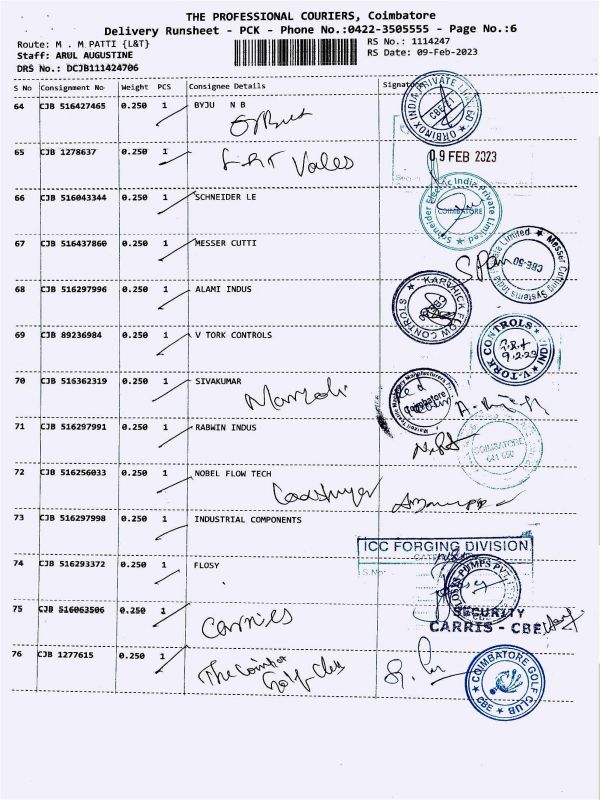 THE PROFESSIONAL COURIERS, Coimbatore
Delivery Runsheet - PCK - Phone No.:0422-3505555 - Page No.:6
Route: M . M PATTI {L&T}
RS No.: 1114247
Staff: ARUL AUGUSTINE
RS Date: 09-Feb-2023
DRS No.: DCJB111424706
S No Consignment No Weight PCS Consignee Details Signature
64 CJB 516427465 0.250 1 BYJU N B
ORBINOX INDIA PRIVATE LIMITED
65 CJB 1278637 0.250 1
09 FEB 2023
66 CJB 516043344 0.250 1 SCHNEIDER LE
Schneider Electric India Private Limited
COIMBATORE
67 CJB 516437860 0.250 1 MESSER CUTTI
Messer Cutting Systems India Private Limited
CBE-50
68 CJB 516297996 0.250 1 ALAMI INDUS
KARTHICK FLOW CONTROLS
69 CJB 89236984 0.250 1 V TORK CONTROLS
V-TORK CONTROLS
70 CJB 516362319 0.250 1 SIVAKUMAR
Coimbatore
71 CJB 516297991 0.250 1 RABWIN INDUS
COIMBATORE
641 050
72 CJB 516256033 0.250 1 NOBEL FLOW TECH
73 CJB 516297998 0.250 1 INDUSTRIAL COMPONENTS
ICC FORGING DIVISION
74 CJB 516293372 0.250 1 FLOSY
75 CJB 516063506 0.250 1
Carries
SECURITY
CARRIS - CBE
76 CJB 1277615 0.250 1
COIMBATORE GOLF CLUB
CBE